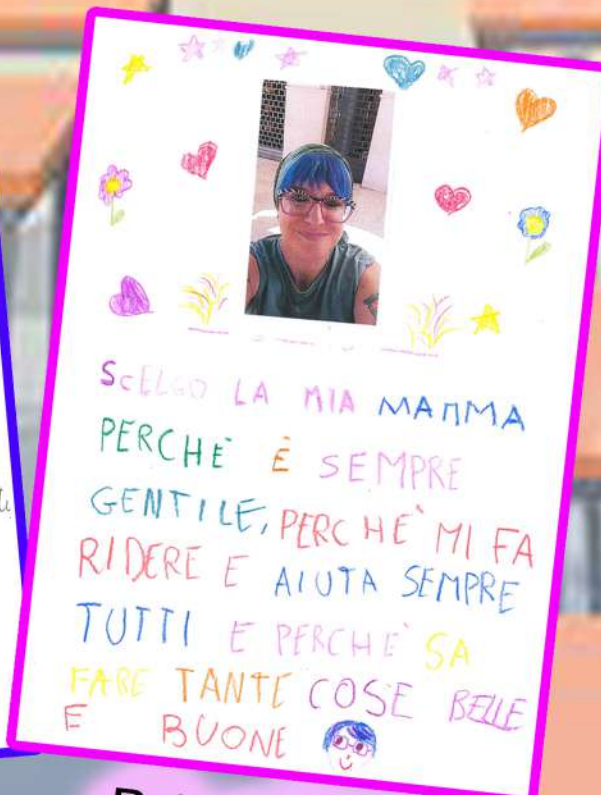 SCELGO LA MIA MAMMA
PERCHÈ È SEMPRE
GENTILE, PERCHÈ MI FA
RIDERE E AIUTA SEMPRE
TUTTI E PERCHÈ SA
FARE TANTE COSE BELLE
E BUONE